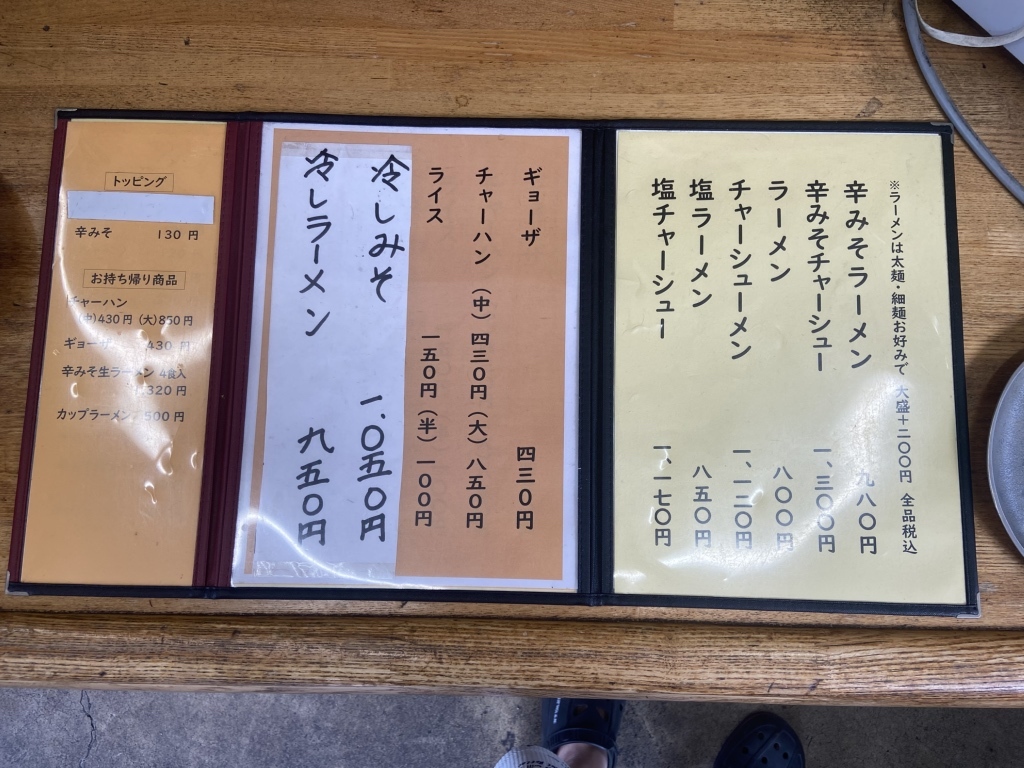 ※ラーメンは太麺・細麺お好みで 大盛+二〇〇円 全品税込
辛みそラーメン 九八〇円
辛みそチャーシュー 一、三〇〇円
ラーメン 八〇〇円
チャーシューメン 一、一二〇円
塩ラーメン 八五〇円
塩チャーシュー 一、一七〇円
ギョーザ 四三〇円
チャーハン (中)四三〇円(大)八五〇円
ライス 一五〇円(半)一〇〇円
冷しみそ 一、〇五〇円
冷しラーメン 九五〇円
トッピング
辛みそ 130円
お持ち帰り商品
チャーハン
(中)430円 (大)850円
ギョーザ 430円
辛みそ生ラーメン 4食入
320円
カップラーメン 500円